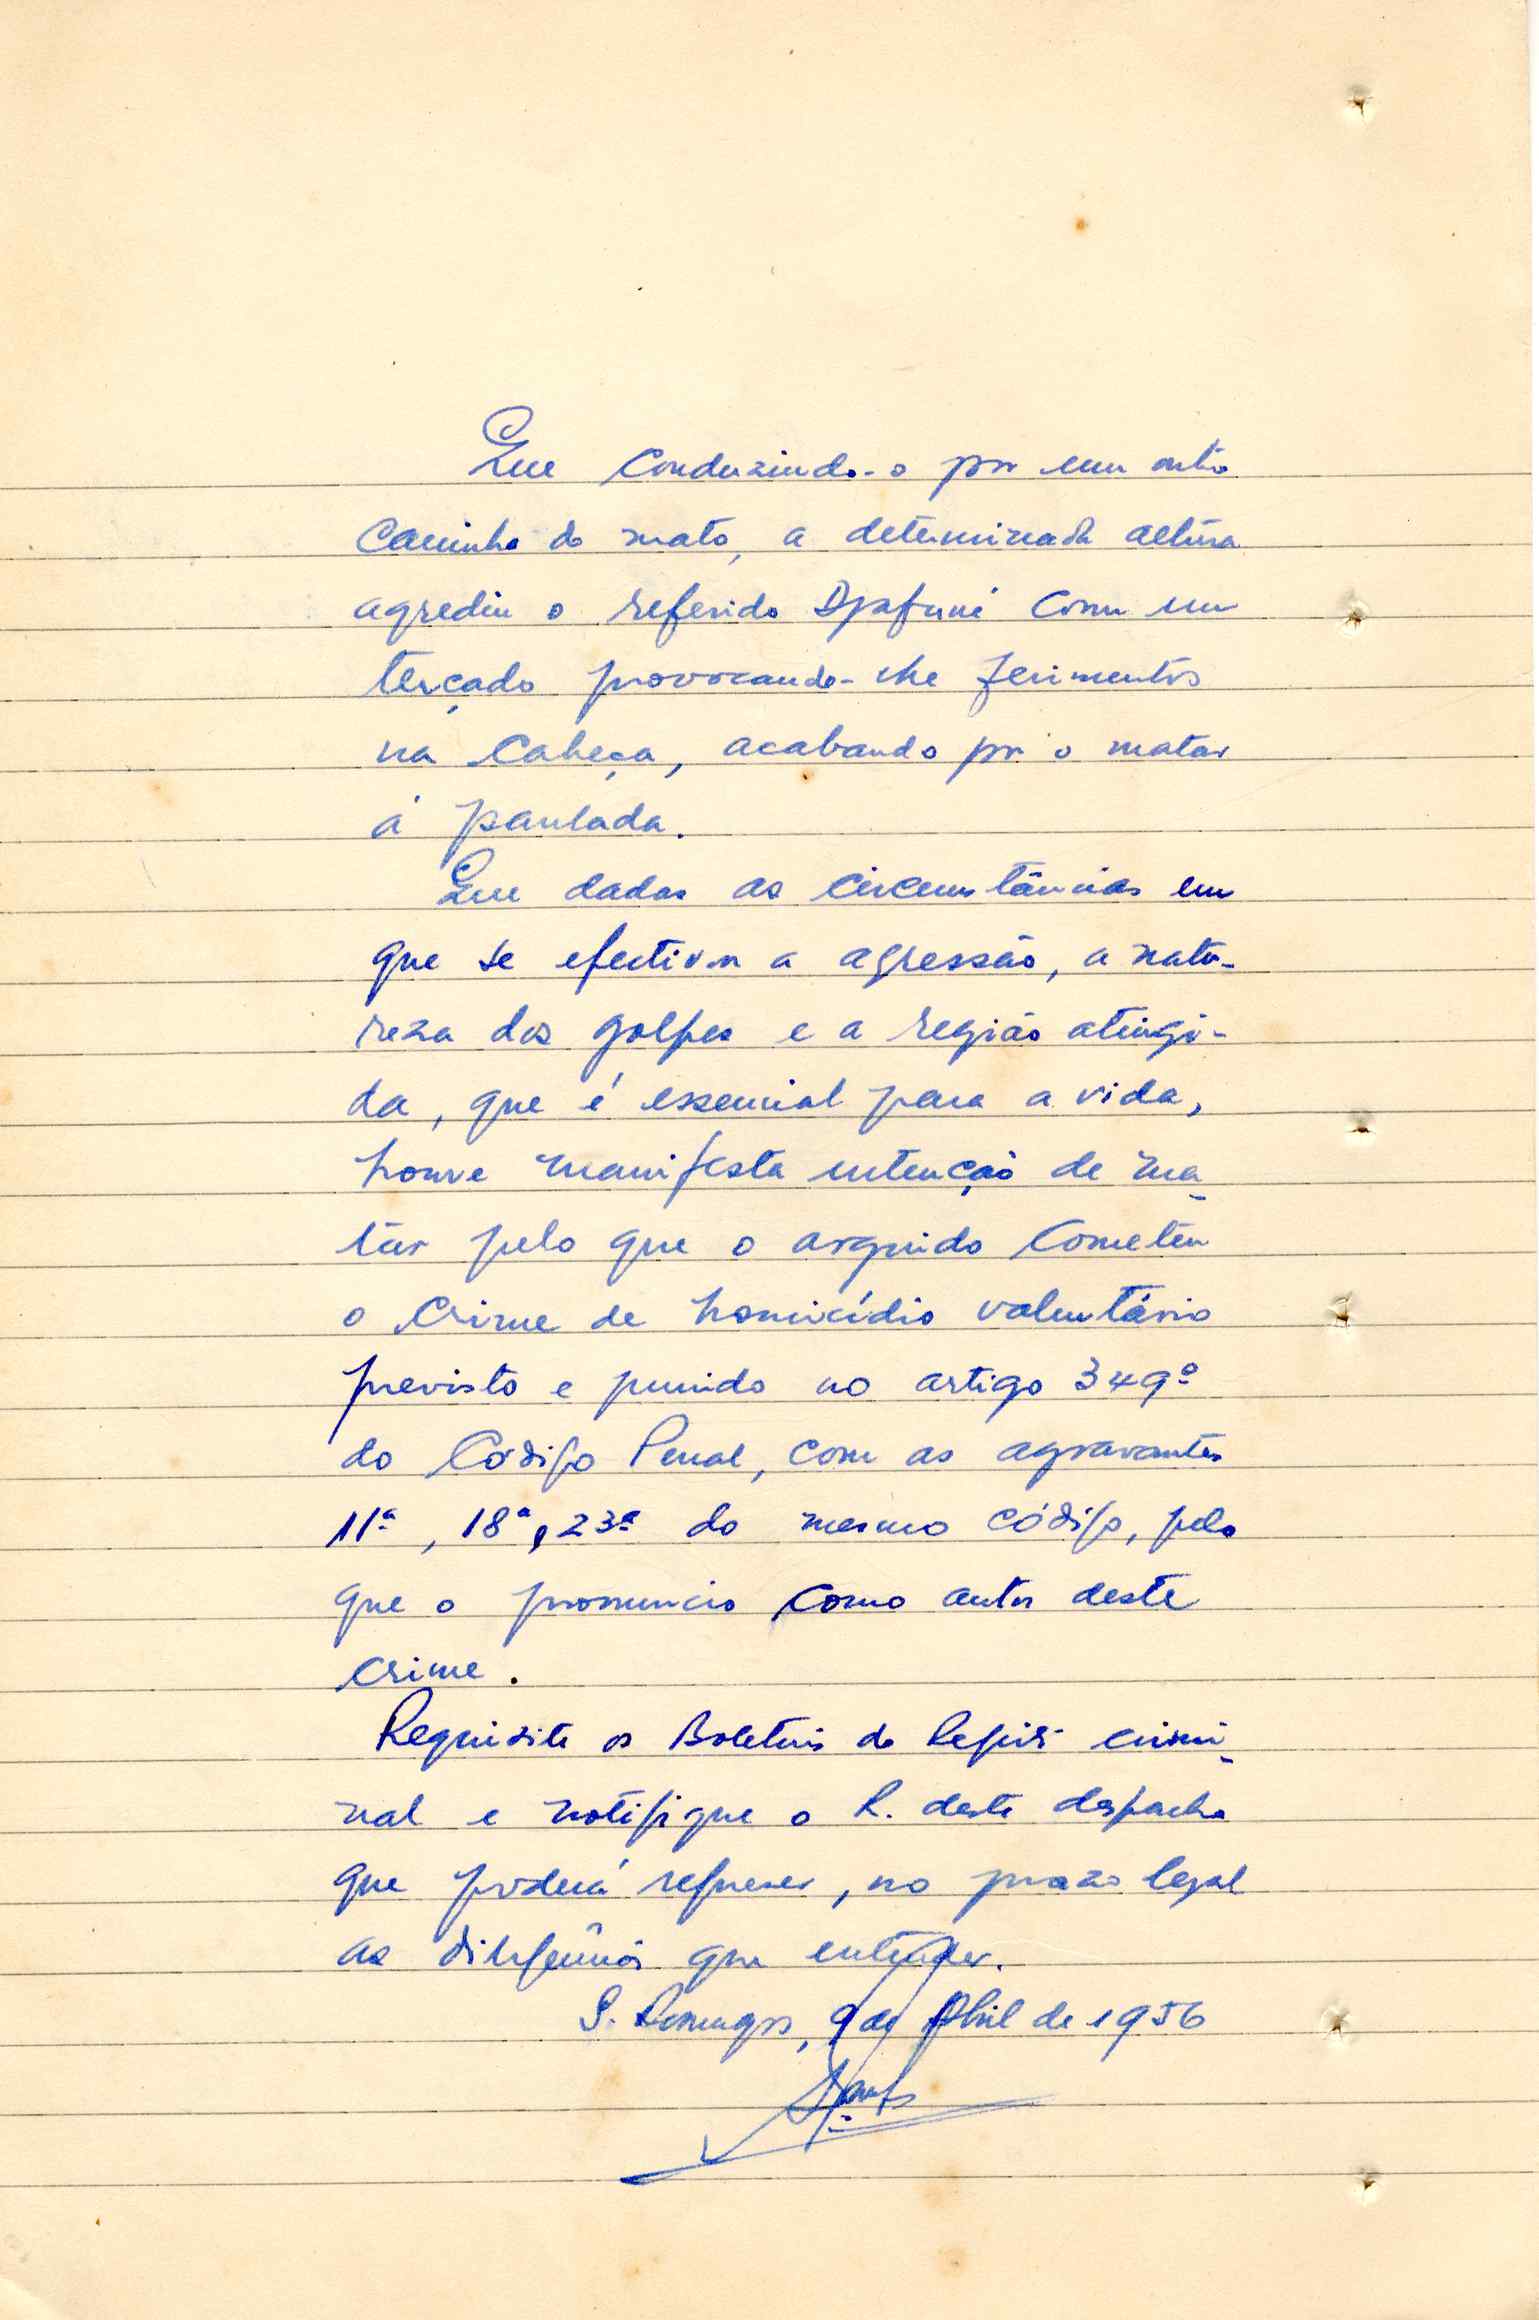 Que conduzindo-o por um outro
caminho do mato, a determinada altura
agrediu o referido Djafuné com um
terçado provocando-lhe ferimentos
na cabeça, acabando por o matar
á paulada.
Que dadas as circunstâncias em
que se efectivou a agressão, a natu-
reza dos golpes e a região atingi-
da, que é essencial para a vida,
houve manifesta intenção de ma-
tar pelo que o arguido cometeu
o crime de homicídio voluntário
previsto e punido no artigo 349º
do Código Penal, com as agravantes
11ª, 18ª, 23ª do mesmo código, pelo
que o pronuncio como autor deste
crime.
Requisite os Boletins do Registo crimi-
nal e notifique o R. deste despacho
que poderá requerer, no prazo legal
as diligências que entender.
S. Domingos, 9 de Abril de 1956